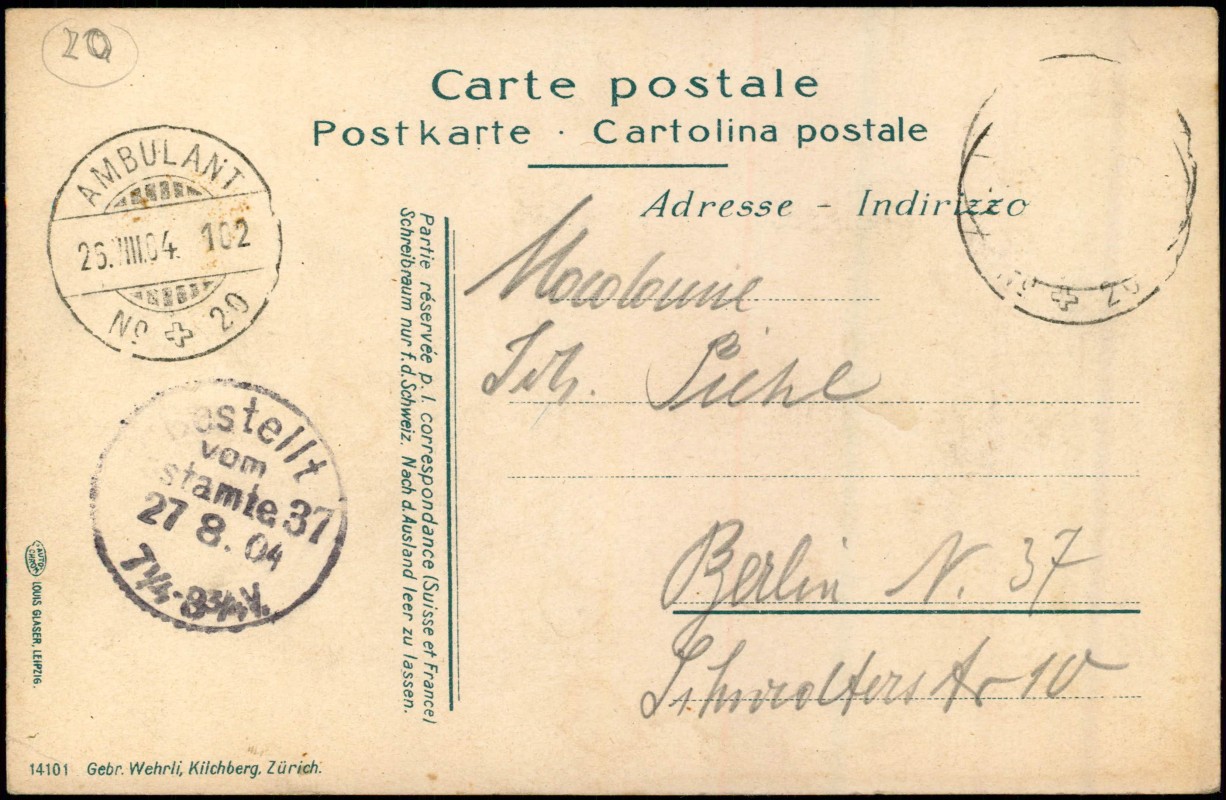 20
Carte postale
Postkarte · Cartolina postale
Adresse - Indirizzo
AMBULANT
26.VIII.04. 102
No 20
No 20
Partie réservée p. l. correspondance (Suisse et France)
Schreibraum nur f. d. Schweiz. Nach d. Ausland leer zu lassen.
Madame
Joh. Piehl
Berlin N. 37
Schwedterstr 10
Bestellt
vom
stamte 37
27 8. 04
7¼-8¾V.
AUTO-CHROM
LOUIS GLASER, LEIPZIG.
14101 Gebr. Wehrli, Kilchberg, Zürich.